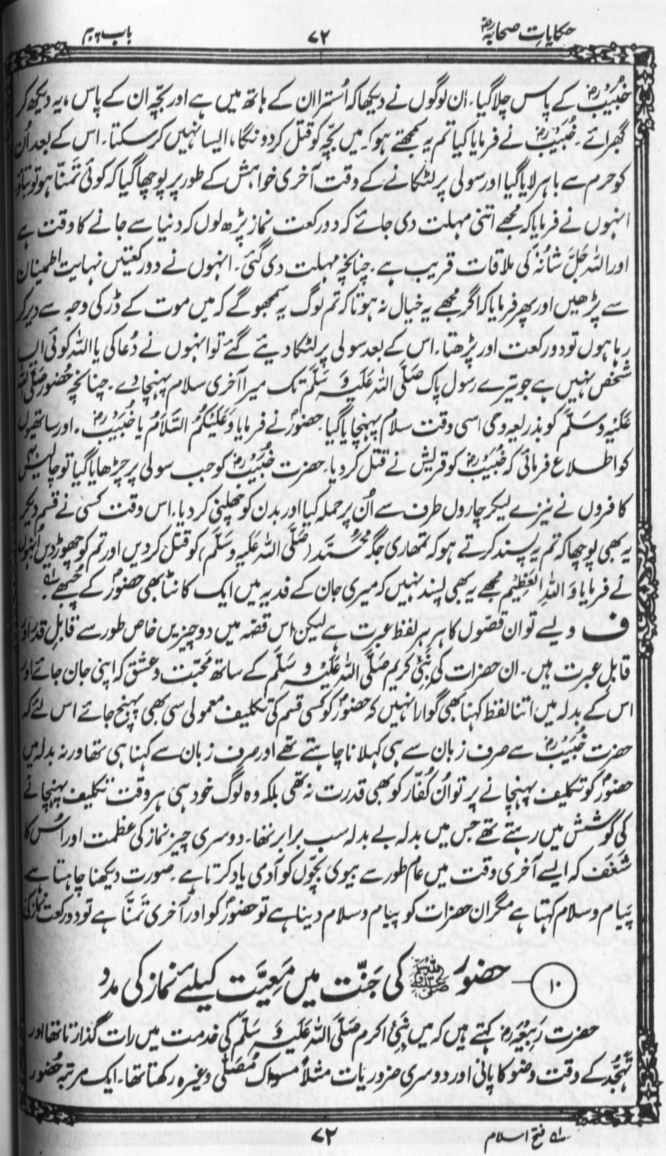 حکایاتِ صحابہؓ ۷۲ باب پنجم
خُبیبؓ کے پاس چلا گیا۔ ان لوگوں نے دیکھا کہ اُسترا ان کے ہاتھ میں ہے اور بچّہ ان کے پاس، یہ دیکھ کر
گھبرائے۔ خُبیبؓ نے فرمایا کیا تم یہ سمجھتے ہو کہ میں بچّہ کو قتل کردونگا، ایسا نہیں کرسکتا۔ اس کے بعد اُن
کو حرم سے باہر لایا گیا اور سولی پر لٹکانے کے وقت آخری خواہش کے طور پر پوچھا گیا کہ کوئی تمنّا ہو تو بتاؤ
انہوں نے فرمایا کہ مجھے اتنی مہلت دی جائے کہ دو رکعت نماز پڑھ لوں کہ دنیا سے جانے کا وقت ہے
اور اللہ جَلَّ شَانُہٗ کی ملاقات قریب ہے۔ چنانچہ مہلت دی گئی۔ انہوں نے دو رکعتیں نہایت اطمینان
سے پڑھیں اور پھر فرمایا کہ اگر مجھے یہ خیال نہ ہوتا کہ تم لوگ یہ سمجھو گے کہ میں موت کے ڈر کی وجہ سے دیر کر
رہا ہوں تو دو رکعت اور پڑھتا۔ اس کے بعد سولی پر لٹکا دیئے گئے تو انہوں نے دُعا کی یا اللہ کوئی ایسا
شخص نہیں ہے جو تیرے رسول پاک صَلَّی اللہُ عَلَیْہِ وَسَلَّمَ تک میرا آخری سلام پہنچا دے۔ چنانچہ حضور صَلَّی اللہُ
عَلَیْہِ وَسَلَّمَ کو بذریعہ وحی اسی وقت سلام پہنچایا گیا حضورؐ نے فرمایا وَعَلَیْکُمُ السَّلَامُ یا خبیبؓ۔ اور ساتھیوں
کو اطلاع فرمائی کہ خبیبؓ کو قریش نے قتل کردیا۔ حضرت خُبیبؓ کو جب سولی پر چڑھایا گیا تو چالیس
کافروں نے نیزے لیکر چاروں طرف سے اُن پر حملہ کیا اور بدن کو چھلنی کردیا۔ اس وقت کسی نے قسم دیکر
یہ بھی پوچھا کہ تم یہ پسند کرتے ہو کہ تمہاری جگہ محمّد (صَلَّی اللہُ عَلَیْہِ وَسَلَّمَ) کو قتل کردیں اور تم کو چھوڑ دیں انہوں
نے فرمایا وَاللہِ الْعَظِیْمِ مجھے یہ بھی پسند نہیں کہ میری جان کے فدیہ میں ایک کانٹا بھی حضورؐ کے چبھے۔؎۱
ف ویسے تو ان قصّوں کا ہر ہر لفظ عبرت ہے لیکن اس قصّہ میں دو چیزیں خاص طور سے قابلِ قدر اور
قابلِ عبرت ہیں۔ ان حضرات کی نبیِّ کریم صَلَّی اللہُ عَلَیْہِ وَسَلَّمَ کے ساتھ محبّت و عشق کہ اپنی جان جائے اور
اس کے بدلہ میں اتنا لفظ کہنا بھی گوارا نہیں کہ حضورؐ کو کسی قسم کی تکلیف معمولی سی بھی پہنچ جائے اس لئے کہ
حضرت خُبیبؓ سے صرف زبان سے ہی کہلانا چاہتے تھے اور صرف زبان سے کہنا ہی تھا ورنہ بدلہ میں
حضورؐ کو تکلیف پہنچانے پر تو ان کُفّار کو بھی قدرت نہ تھی بلکہ وہ لوگ خود ہی ہر وقت تکلیف پہنچانے
کی کوشش میں رہتے تھے جس میں بدلہ بے بدلہ سب برابر تھا۔ دوسری چیز نماز کی عظمت اور اس کا
شَغَف کہ ایسے آخری وقت میں عام طور سے بیوی بچّوں کو آدمی یاد کرتا ہے صورت دیکھنا چاہتا ہے
پیام و سلام کہتا ہے مگر ان حضرات کو پیام و سلام دینا ہے تو حضورؐ کو اور آخری تمنّا ہے تو دو رکعت نماز کی
۱۰ — حضور ﷺ کی جنّت میں مَعِیَّت کیلئے نماز کی مدد
حضرت ربیعہؓ کہتے ہیں کہ میں نبیِّ اکرم صَلَّی اللہُ عَلَیْہِ وَسَلَّمَ کی خدمت میں رات گذارتا تھا اور
تہجّد کے وقت وضو کا پانی اور دوسری ضروریات مثلاً مسواک مُصلّٰی وغیرہ رکھتا تھا۔ ایک مرتبہ حضور
؎۱ فتح اسلام
۷۲